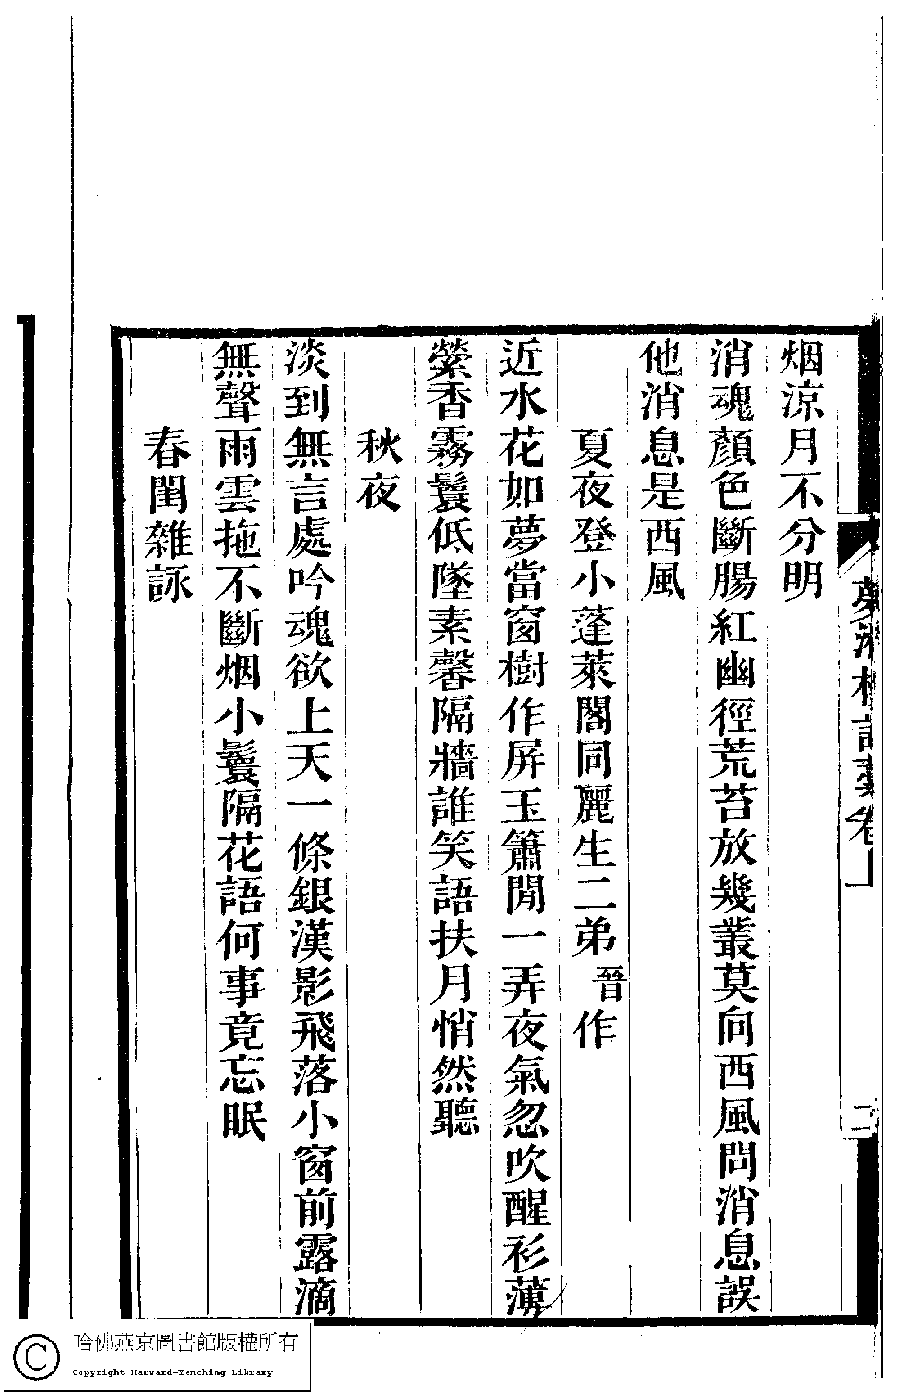 烟涼月不分明
消魂顏色斷腸紅幽徑荒苔放幾叢莫向西風問消息誤
他消息是西風
夏夜登小蓬萊閣同麗生二弟晉作
近水花如夢當窗樹作屏玉簫閒一弄夜氣忽吹醒衫薄
縈香霧鬟低墜素馨隔牆誰笑語扶月悄然聽
秋夜
淡到無言處吟魂欲上天一條銀漢影飛落小窗前露滴
無聲雨雲拖不斷烟小鬟隔花語何事竟忘眠
春閨雜詠
夢湘樓詩藁卷一
二
哈佛燕京圖書館版權所有
Copyright Harvard-Yenching Library